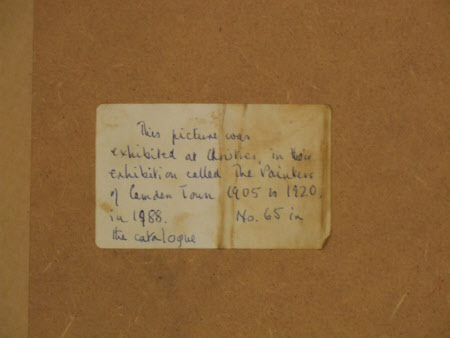 This picture was
exhibited at Christies, in their
exhibition called The Painters
of Camden Town 1905 to 1920,
in 1988. No. 65 in
the catalogue